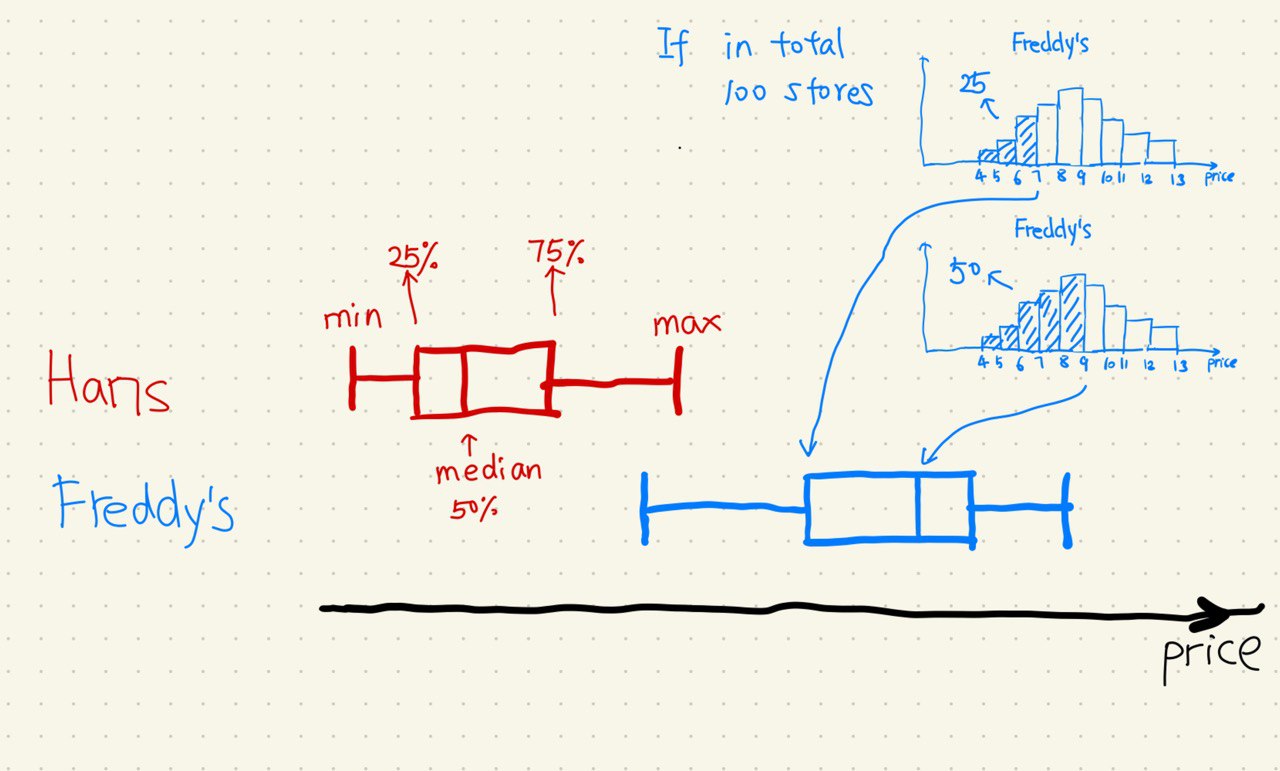 If in total
100 stores
Freddy's
25
4 5 6 7 8 9 10 11 12 13 price
Freddy's
50
4 5 6 7 8 9 10 11 12 13 price
25%
75%
min
max
Hans
median
50%
Freddy's
price